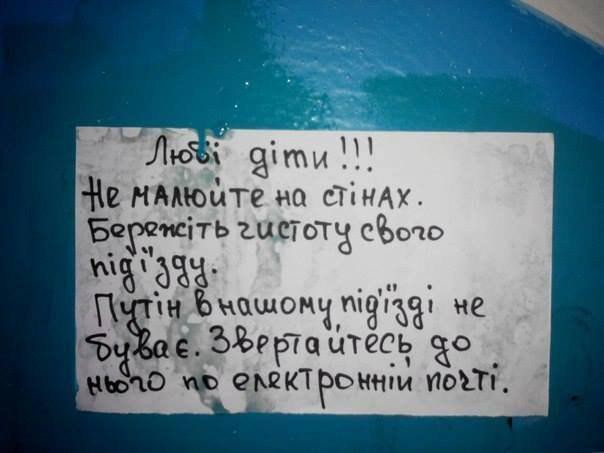 Любі діти!!!
Не малюйте на стінах.
Бережіть чистоту свого
під'їзду.
Путін в нашому під'їзді не
буває. Звертайтесь до
нього по електронній почті.